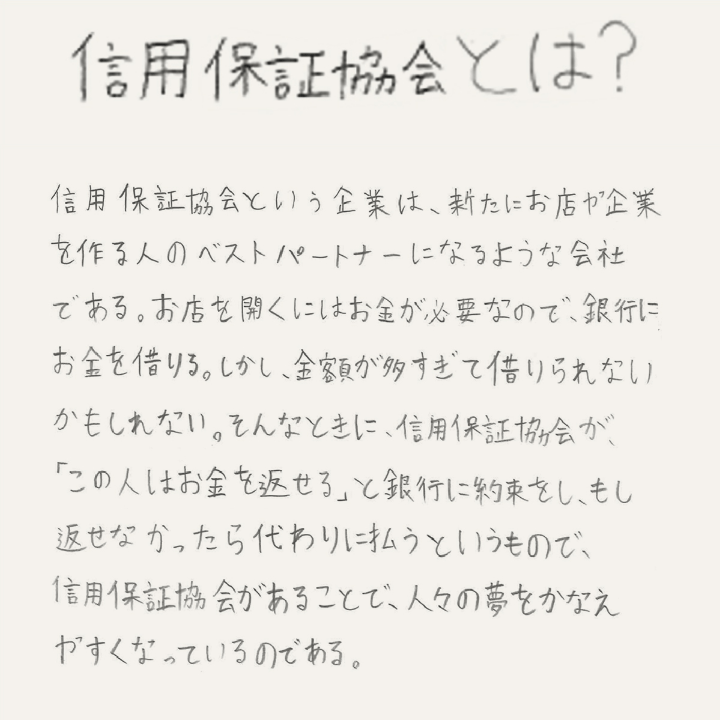 信用保証協会とは?
信用保証協会という企業は、新たにお店や企業
を作る人のベストパートナーになるような会社
である。お店を開くにはお金が必要なので、銀行に
お金を借りる。しかし、金額が多すぎて借りられない
かもしれない。そんなときに、信用保証協会が、
「この人はお金を返せる」と銀行に約束をし、もし
返せなかったら代わりに払うというもので、
信用保証協会があることで、人々の夢をかなえ
やすくなっているのである。